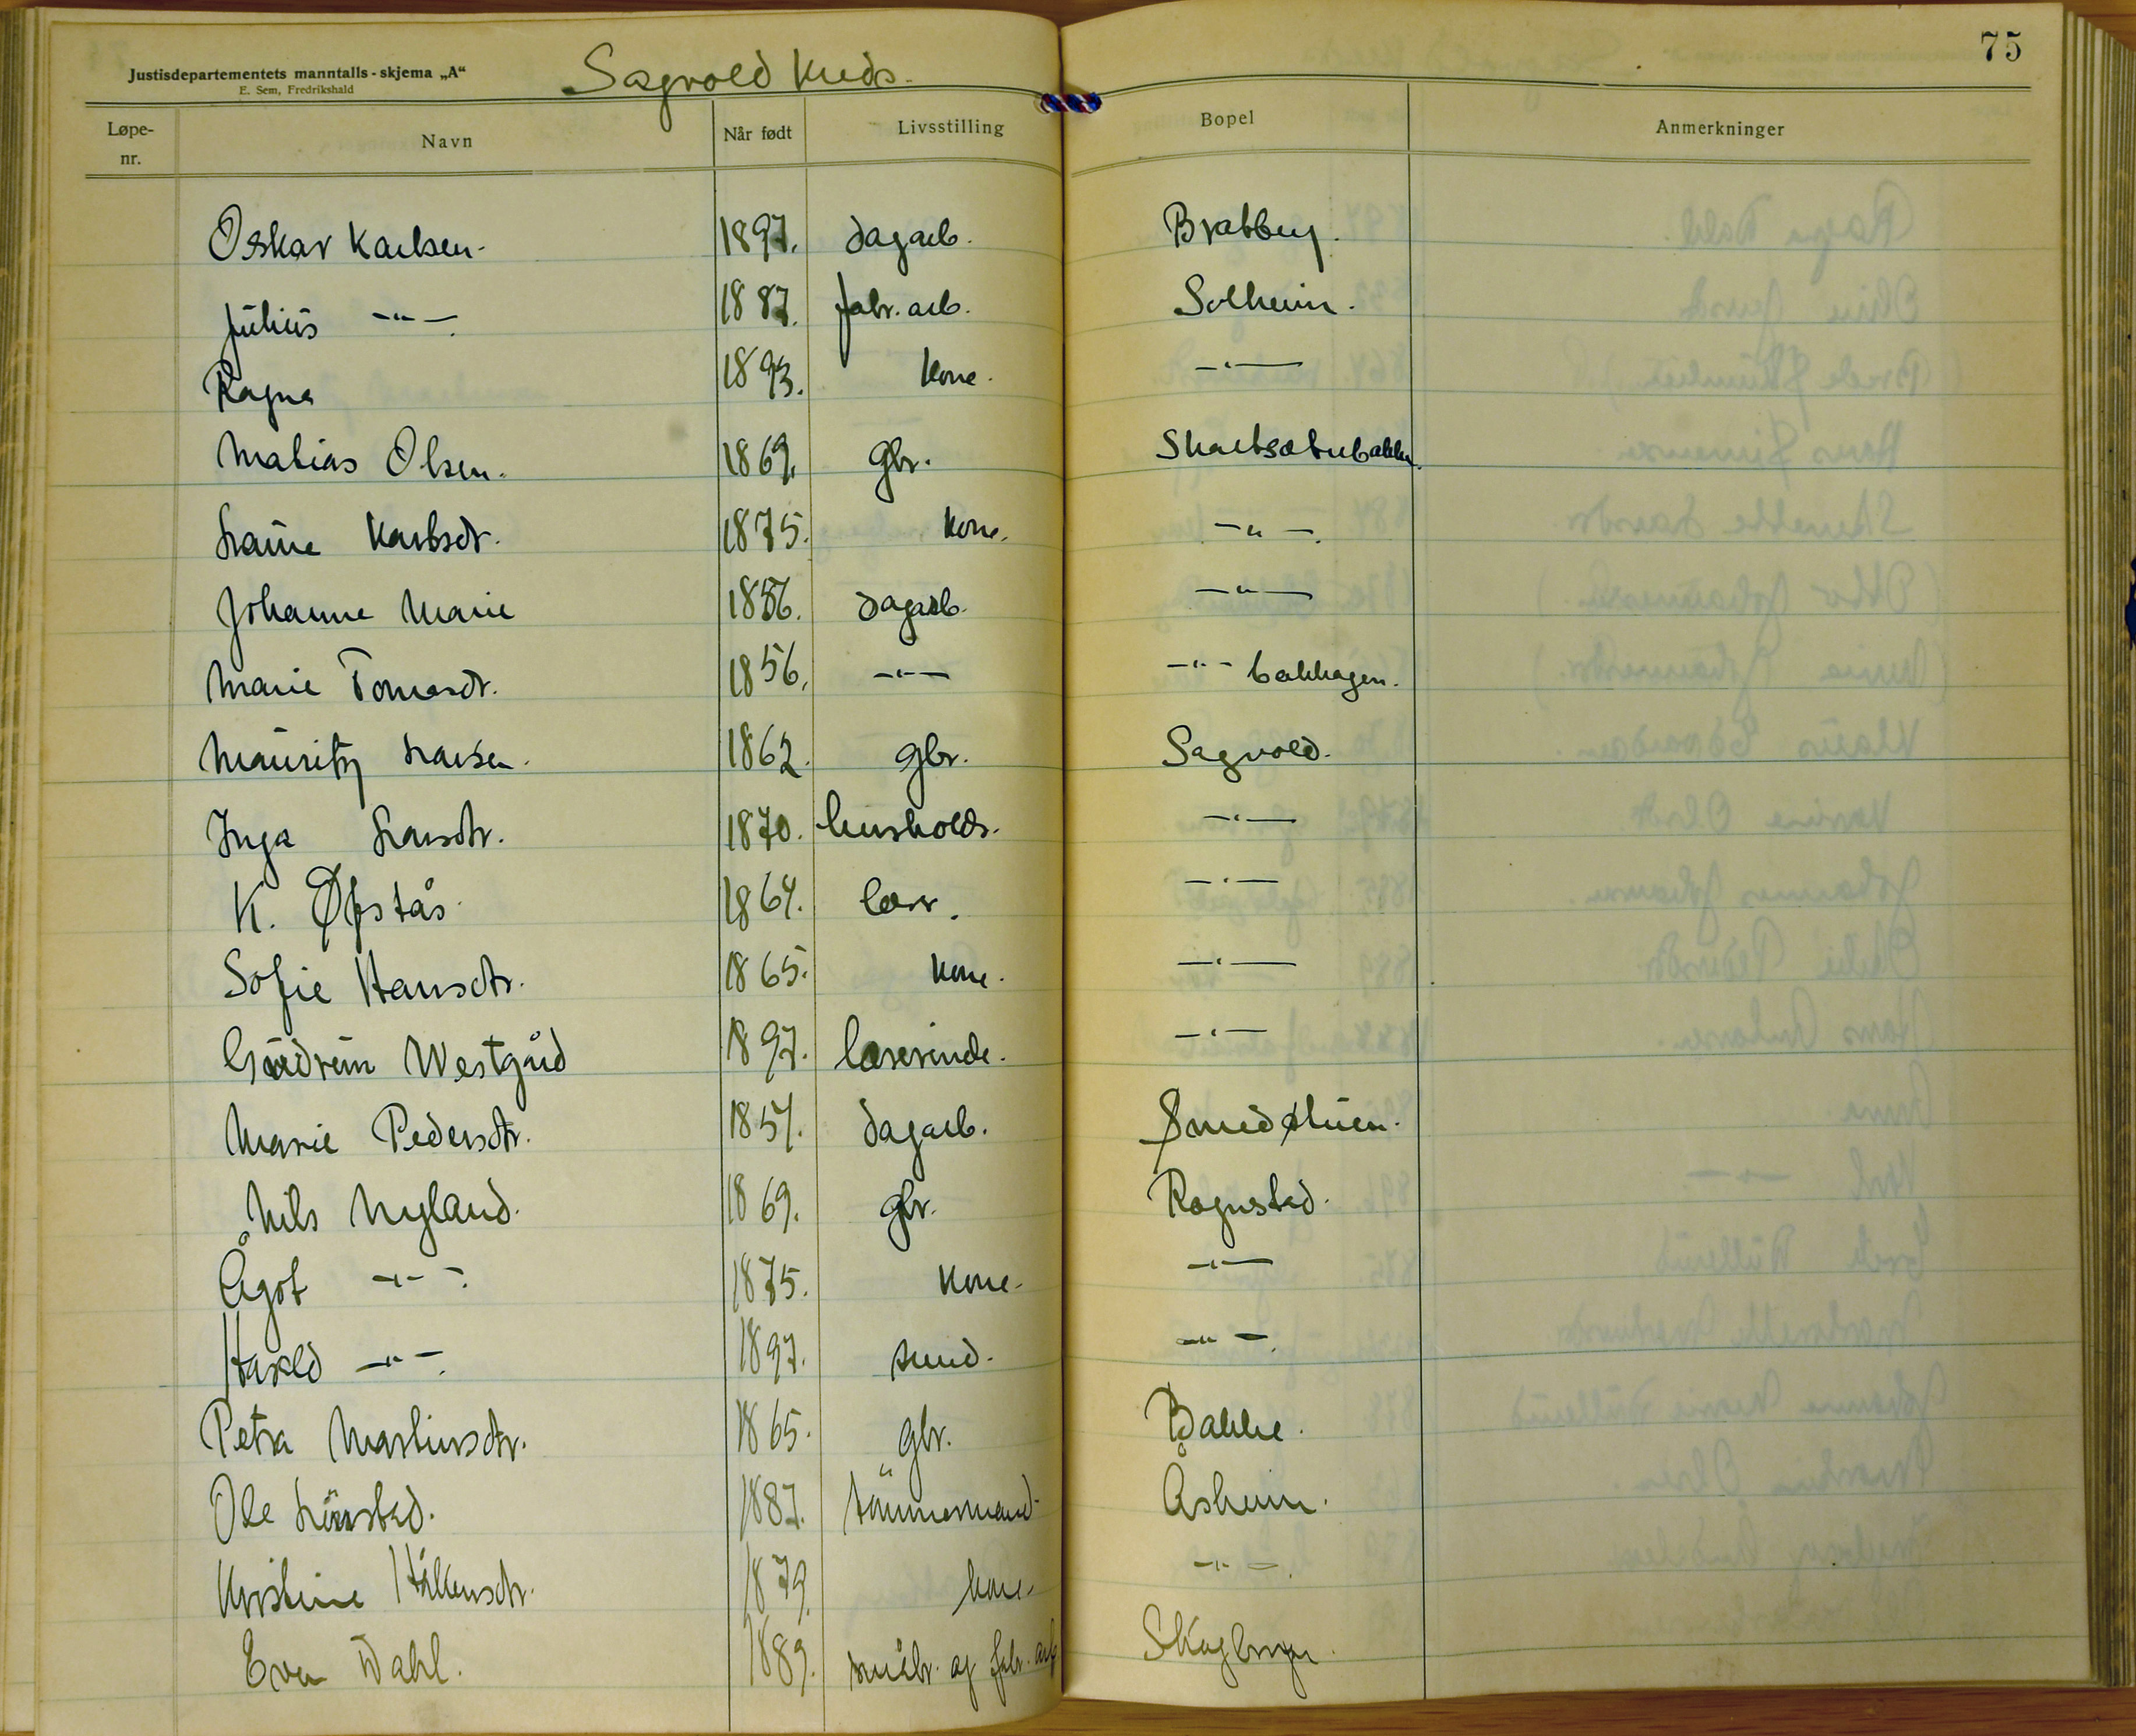 75
Justisdepartementets manntalls - skjema „A“
E. Sem, Fredrikshald
Sagvold Kreds.
Løpe-nr. Navn Når født Livsstilling Bopel Anmerkninger
Oskar Karlsen. 1897. dagarb. Bratberg.
Julius —"— 1887. fabr. arb. Solheim.
Ragna 1893. kone. —"—
Matias Olsen. 1869. gbr.
Karlsdtr. 1875. kone. —"—
Johanne Marie 1856. dagarb. —"—
Marie Tomasdt. 1856. —"— —"— bakhagen.
Mauritz Larsen. 1862. gbr. Sagvold.
Inga Larsdtr. 1870. husholds. —"—
K. Øfstås 1864. lær. —"—
Sofie Hansdtr. 1865. kone. —"—
Gudrun Westgård 1897. lærerinde. —"—
Marie Pedersdtr. 1854. dagarb. Smedstuen.
Nils Nyland. 1869. gbr. Rognstad.
Ågot —"— 1875. kone. —"—
Harald —"— 1897. smed. —"—
Petra Martinsdtr. 1865. gbr. Bakke.
Ole 1887. tömmermand Åsheim.
Kristine Håkensdtr. 1879. kone. —"—
Even Dahl. 1889. småbr. og fabr. arb